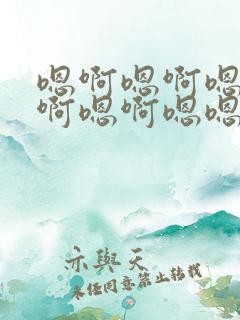 嗯啊嗯啊嗯
啊嗯啊嗯嗯
亦與天
未经同意禁止转载